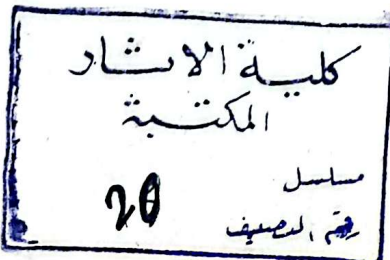 كلية الآثار
المكتبة
مسلسل
20
رقم التصنيف